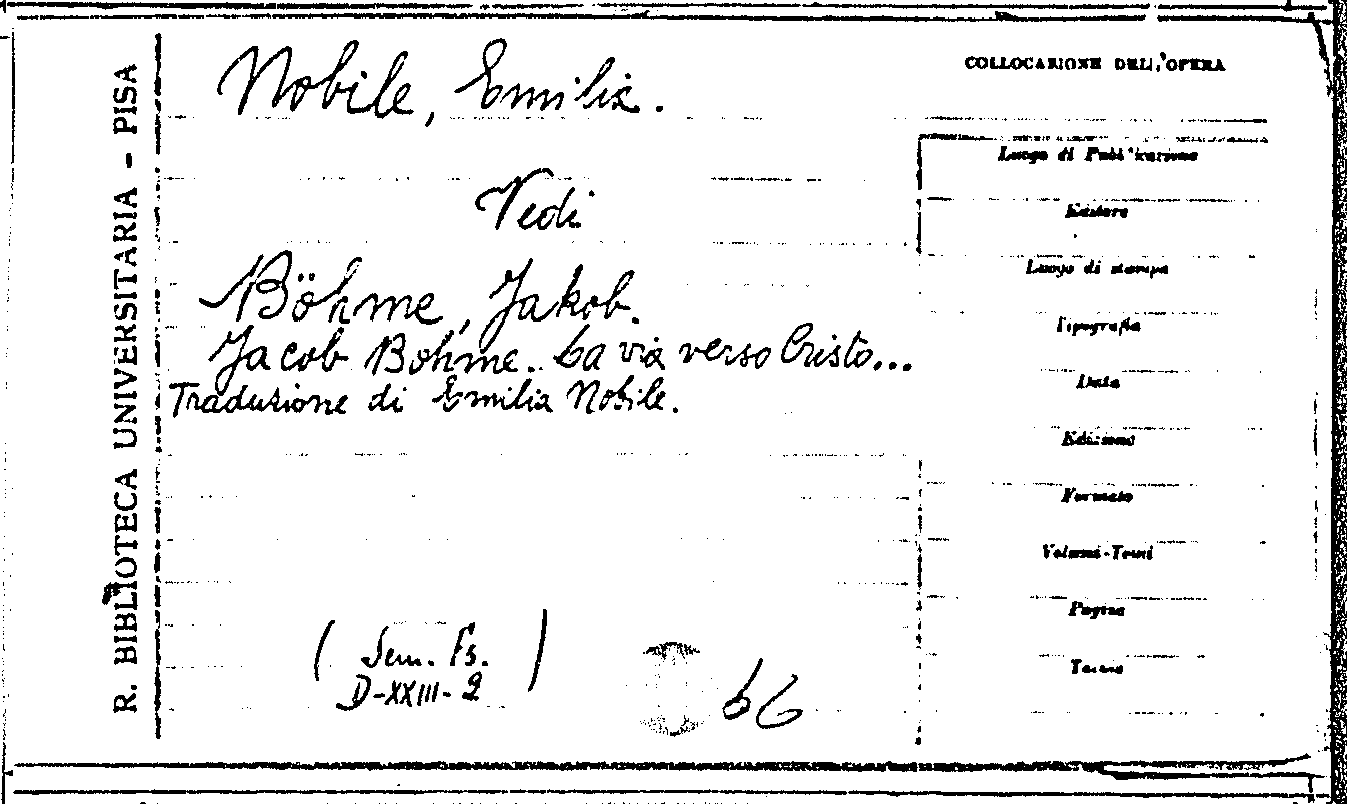 R. BIBLIOTECA UNIVERSITARIA - PISA
Nobile, Emilia.
Vedi
Böhme, Jakob.
Jacob Bohme.. La via verso Cristo...
Traduzione di Emilia Nobile.
( Sem. Fs. )
D-XXIII-2
66
COLLOCAZIONE DELL'OPERA
Luogo di Pubblicazione
Editore
Luogo di stampa
Tipografia
Data
Edizione
Formato
Volumi-Tomi
Pagine
Tavole